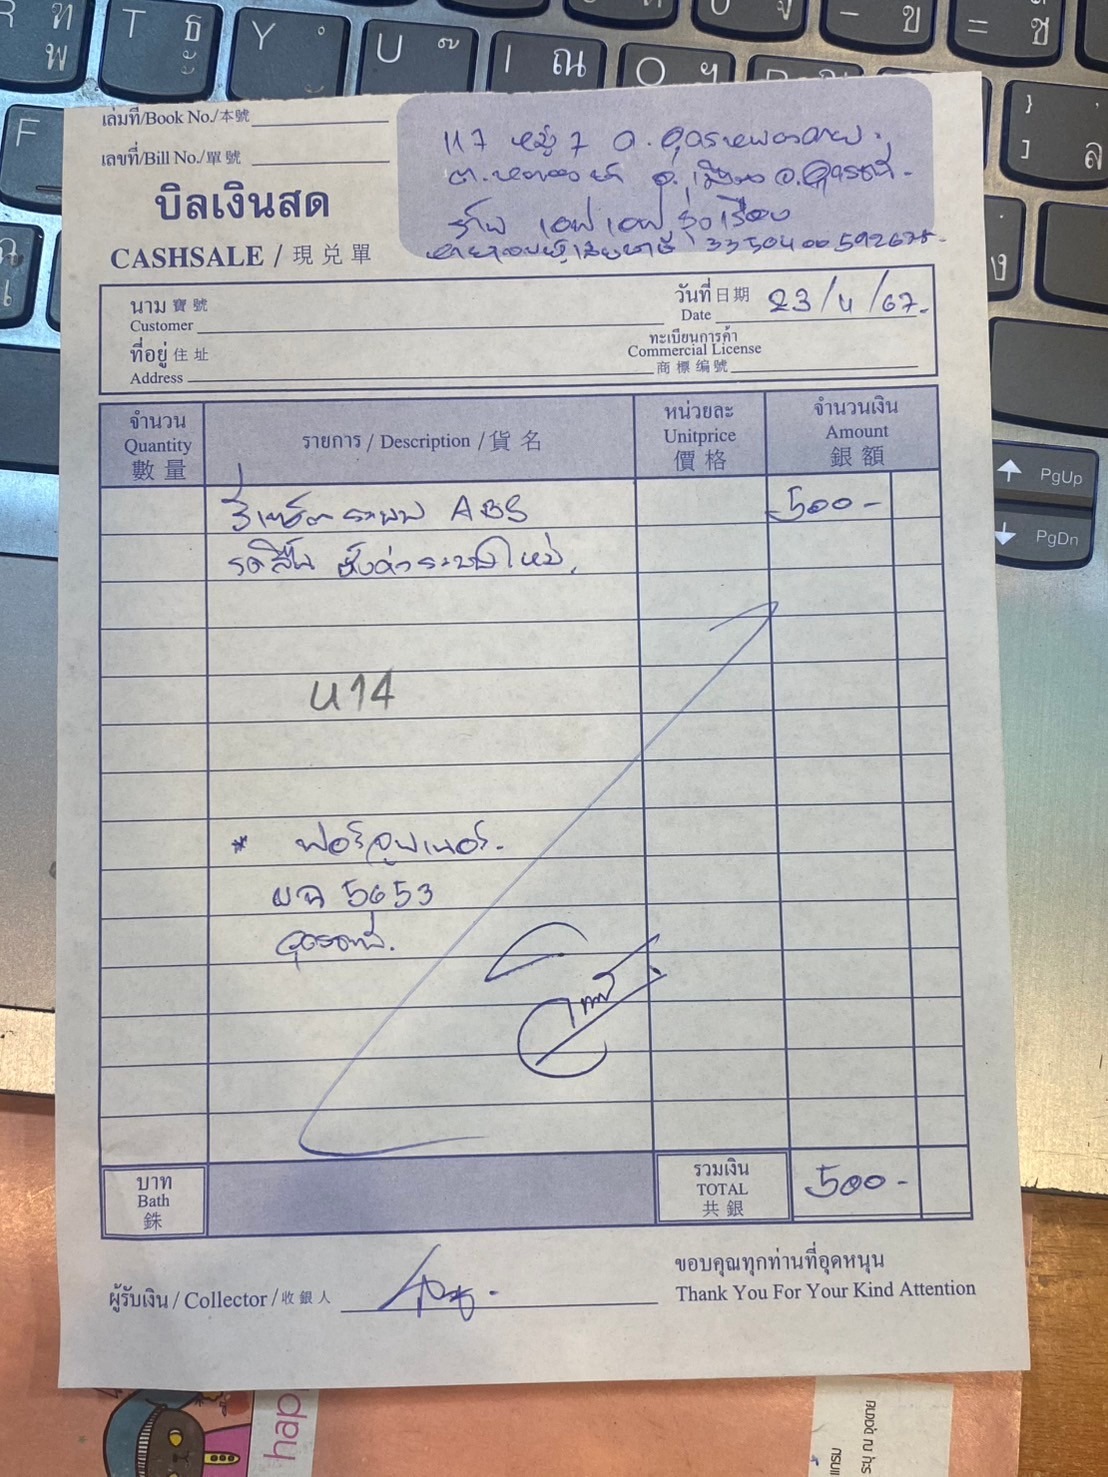 R ท พ
T ธ ะ
Y ั
U ๊
I ณ
O ฯ
- ข
= ช
F
} ,
] ล
ง
PgUp
PgDn
เล่มที่/Book No./本號
เลขที่/Bill No./單號
บิลเงินสด
CASHSALE / 現兌單
117 หมู่ 7 ถ.
ต. อ.เมือง จ.อุดรธานี
ร้าน เอฟเอฟ รุ่งเรือง
นาม 寶號
Customer
วันที่ 日期
Date 23/4/67.
ที่อยู่ 住址
Address
ทะเบียนการค้า
Commercial License
商標编號
จำนวน
Quantity
數量
รายการ / Description / 貨名
หน่วยละ
Unitprice
價格
จำนวนเงิน
Amount
銀額
รีเซ็ตระบบ ABS 500-
รถลื่น ตั้งค่าระบบใหม่.
น14
* ฟอร์จูนเนอร์.
5653
อุดรธานี.
บาท
Bath
銖
รวมเงิน
TOTAL
共銀
500-
ผู้รับเงิน / Collector / 收銀人
ขอบคุณทุกท่านที่อุดหนุน
Thank You For Your Kind Attention
hap